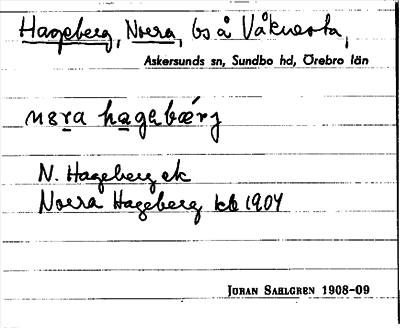 Hageberg, Norra, bs å Våknesta,
Askersunds sn, Sundbo hd, Örebro län
nora hagabærj
N. Hageberg ek
Norra Hageberg kb 1904
JÖRAN SAHLGREN 1908-09